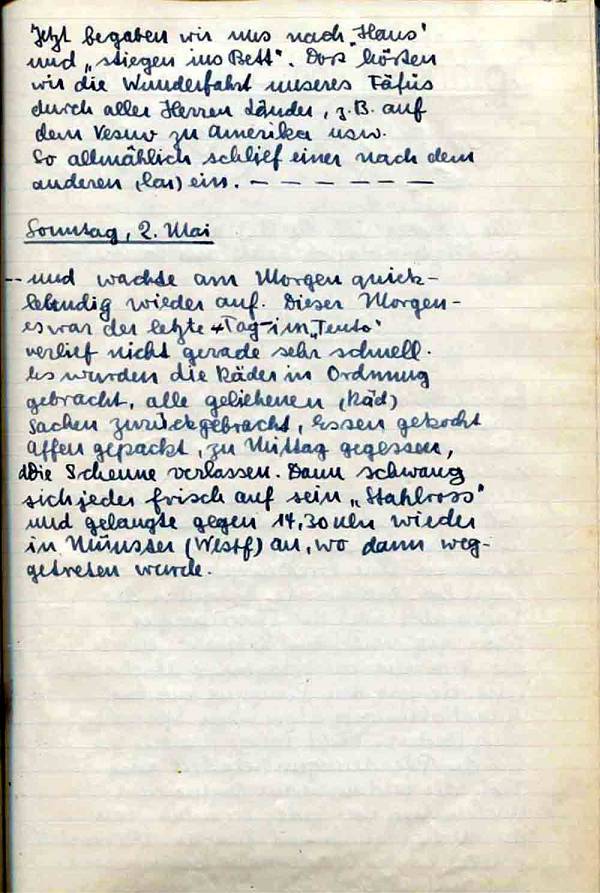 Jetzt begaben wir uns nach „Haus"
und „stiegen ins Bett". Dort hörten
wir die Wunderfahrt unseres Fäfüs
durch aller Herren Länder, z.B. auf
dem Vesuv zu Amerika usw.
So allmählich schlief einer nach dem
anderen (len) ein. — — — — — —
Sonntag, 2. Mai
-- und wachte am Morgen quick-
lebendig wieder auf. Dieser Morgen -
es war der letzte Tag - im „Teuto"
verlief nicht gerade sehr schnell.
Es wurden die Räder in Ordnung
gebracht, alle geliehenen (Räd)
Sachen zurückgebracht, Essen gekocht
Affen gepackt, zu Mittag gegessen,
die Scheune verlassen. Dann schwang
sich jeder frisch auf sein „Stahlross"
und gelangte gegen 14,30 Uhr wieder
in Münster (Westf) an, wo dann weg-
getreten wurde.